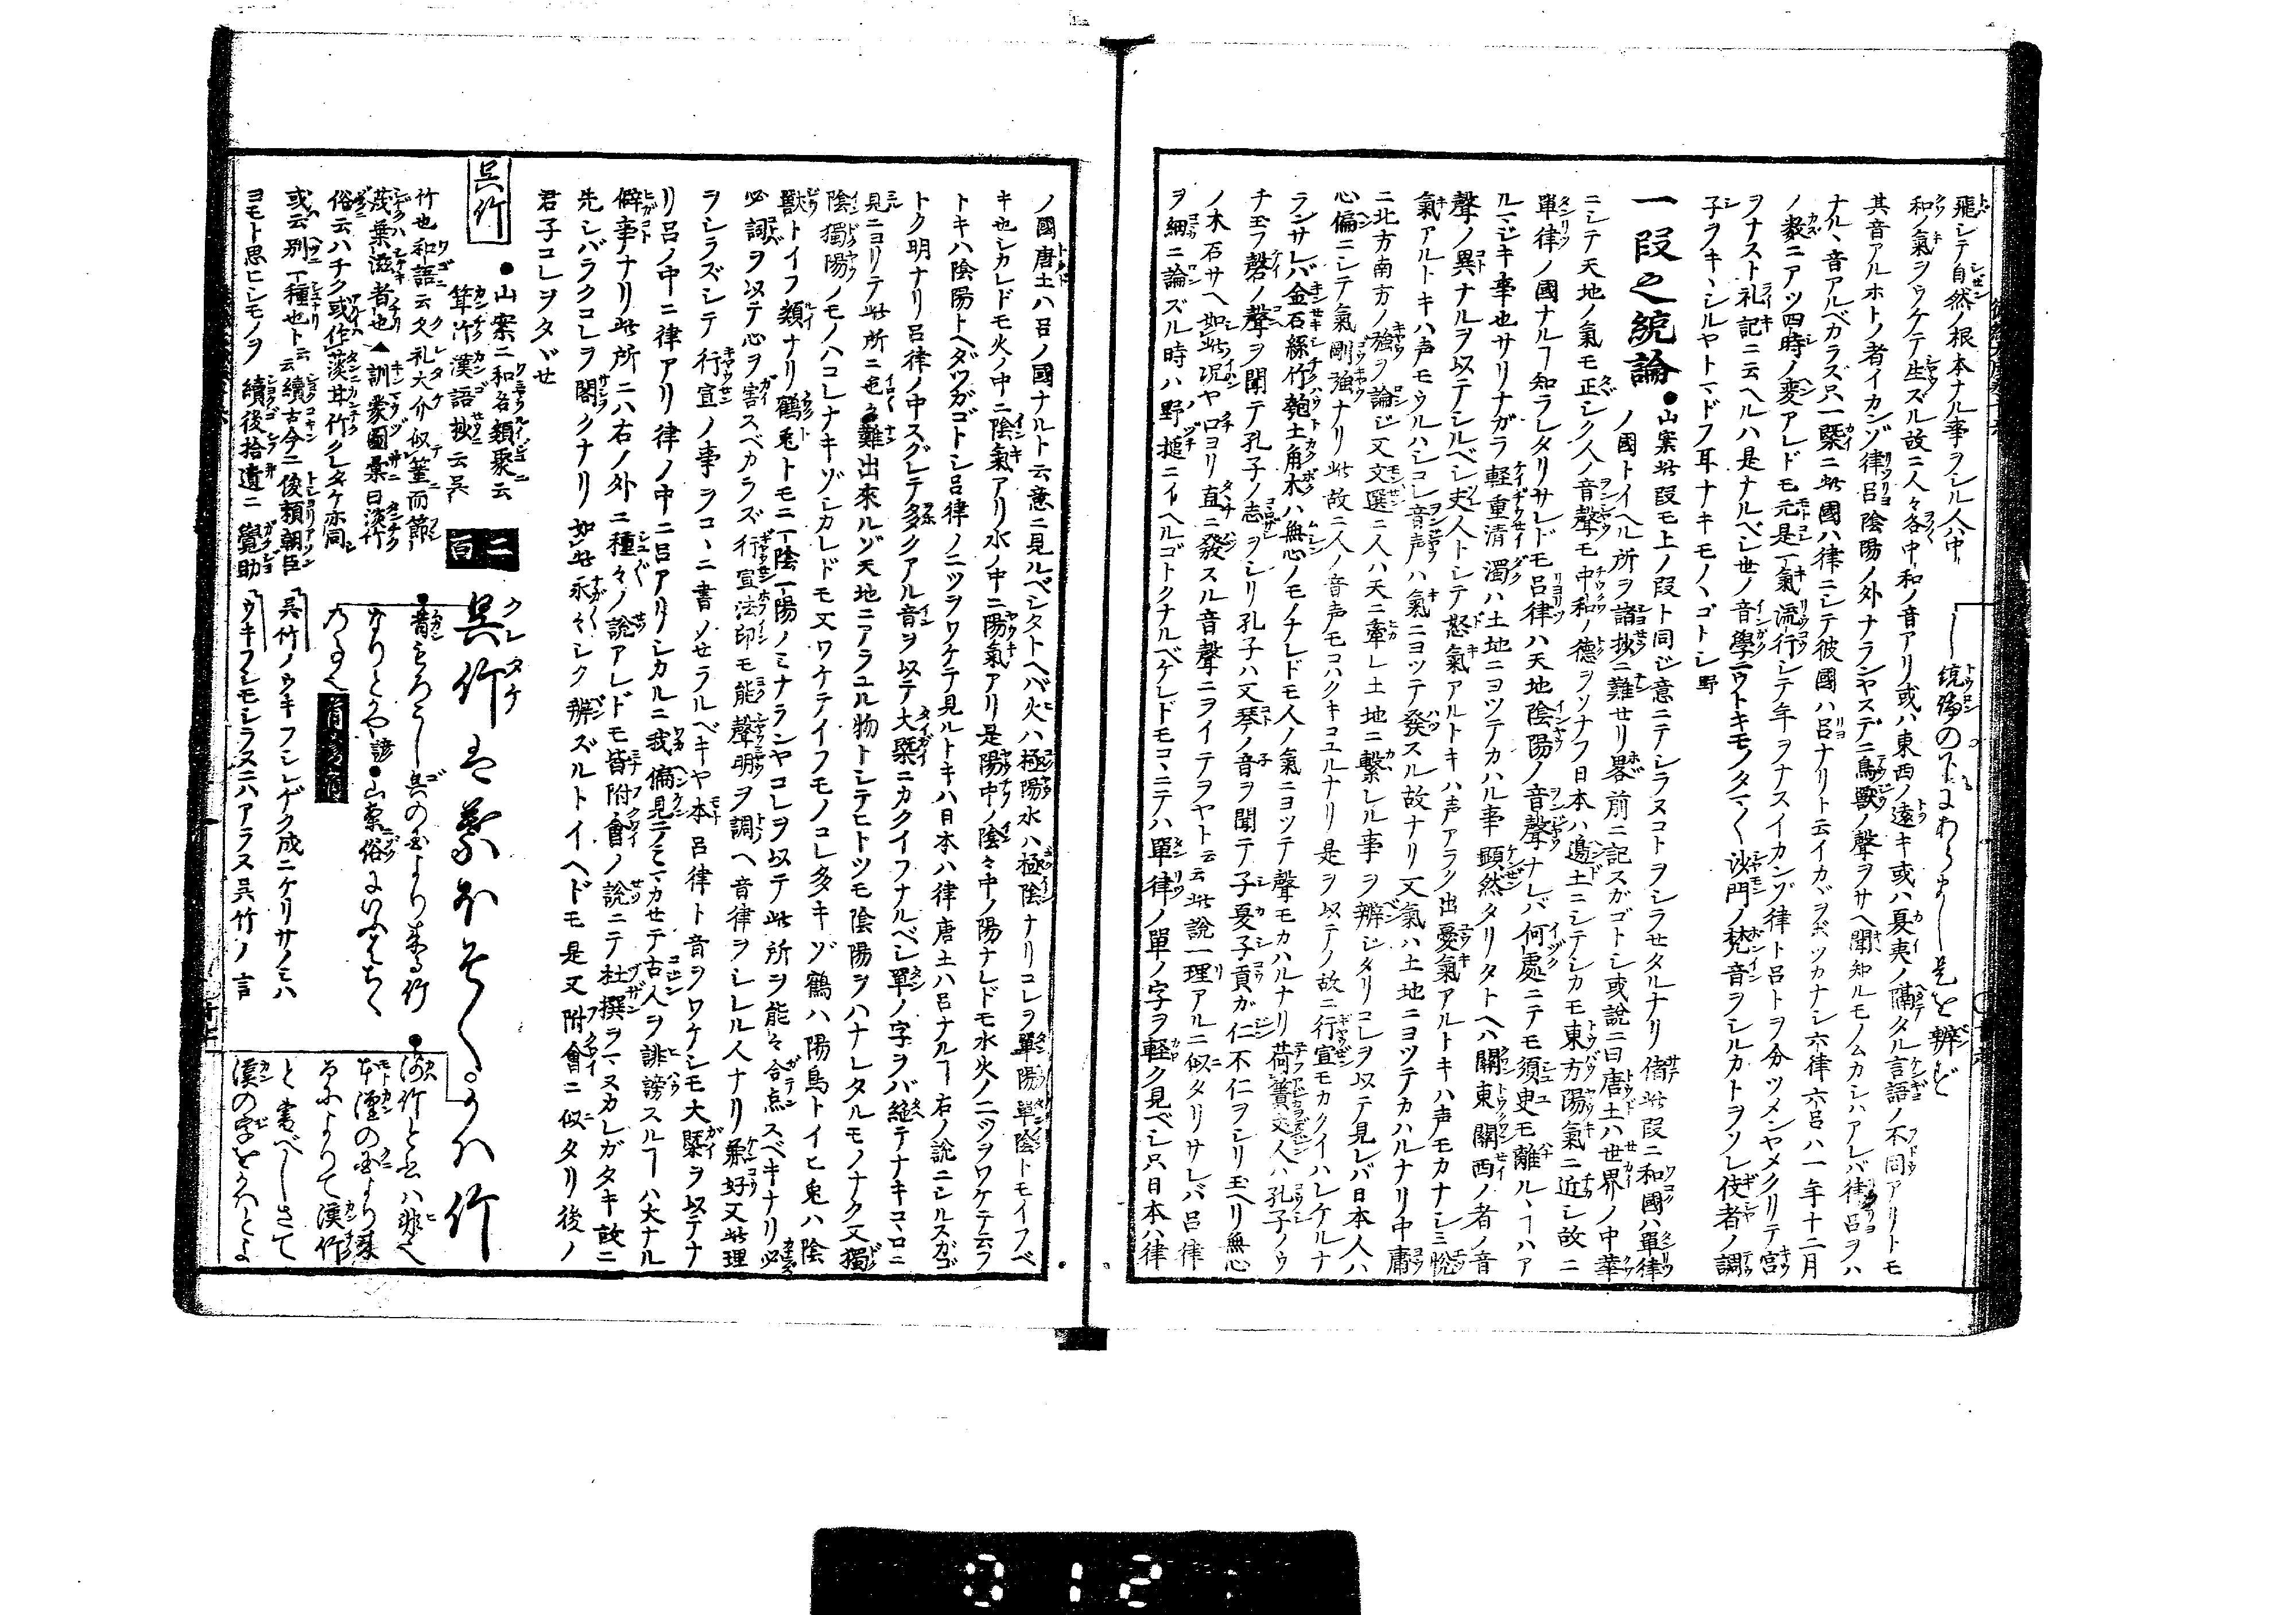 飛シテ自然ノ根本ナル事ヲシル人中
和ノ氣ヲウケテ生ズル故ニ人々各中和ノ音アリ或ハ東西ノ遠キ或ハ夏夷ノ隔タル言語ノ不同アリトモ
其音アルホトノ者イカンゾ律呂陰陽ノ外ナランヤスデニ鳥獸ノ聲ヲサヘ聞知ルモノムカシハアレバ律呂ヲハ
ナルヽ音アルベカラズ只一槩ニ此國ハ律ニシテ彼國ハ呂ナリト云イカヾヲボツカナシ六律六呂ハ一年十二月
ノ数ニアツ四時ノ変アレドモ元是一氣流行シテ年ヲナスイカンゾ律ト呂トヲ分ツメンヤメクリテ宮
ヲナスト礼記ニ云ヘルハ是ナルベシ世ノ音學ニウトキモノタマ〱沙門ノ梵音ヲシルカトヲソレ伎者ノ調
子ヲキヽシルヤトマドフ耳ナキモノヽゴトシ野
一段之統論●山案此段モ上ノ段ト同ジ意ニテシラヌコトヲシラセタルナリ偖此段ニ和國ハ單律
ノ國トイヘル所ヲ諸抄ニ難セリ畧前ニ記スガゴトシ或説ニ曰唐土ハ世界ノ中華
ニシテ天地ノ氣モ正シク人ノ音聲モ中和ノ德ヲソナフ日本ハ邊土ニシテシカモ東方陽氣ニ近シ故ニ
單律ノ國ナルヿ知ラレタリサレドモ呂律ハ天地陰陽ノ音聲ナレバ何處ニテモ須臾モ離ルヽヿハア
ルマジキ事也サリナガラ軽重清濁ハ土地ニヨツテカハル事顕然タリタトヘハ關東關西ノ者ノ音
聲ノ異ナルヲ以テシルベシ夫人トシテ怒氣アルトキハ声アラク出憂氣アルトキハ声モカナシミ悦
氣アルトキハ声モウルハシコレ音声ハ氣ニヨツテ発スル故ナリ又氣ハ土地ニヨツテカハルナリ中庸
ニ北方南方ノ強ヲ論ジ又文選ニ人ハ天ニ牽レ土地ニ繋レル事ヲ辨ジタリコレヲ以テ見レバ日本人ハ
心偏ニシテ氣剛強ナリ此故ニ人ノ音声モコハクキコユルナリ是ヲ以テノ故ニ行宣モカクイハレケルナ
ランサレバ金石絲竹匏土角木ハ無心ノモノナレドモ人ノ氣ニヨツテ聲モカハルナリ荷簣丈人ハ孔子ノウ
チ玉フ磬ノ聲ヲ聞テ孔子ノ志ヲシリ孔子ハ又琴ノ音ヲ聞テ子夏子貢ガ仁不仁ヲシリ玉ヘリ無心
ノ木石サヘ如此况ヤ口ヨリ直ニ發スル音聲ニヲイテヲヤト云云此説一理アルニ似タリサレバ呂律
ヲ細ニ論ズル時ハ野槌ニイヘルゴトクナルベケレドモコヽニテハ單律ノ單ノ字ヲ軽ク見ベシ只日本ハ律
ノ國唐土ハ呂ノ國ナルト云意ニ見ルベシタトヘバ火ハ極陽水ハ極陰ナリコレヲ單陽單陰トモイフベ
キ也シカレドモ火ノ中ニ陰氣アリ水ノ中ニ陽氣アリ是陽中ノ陰々中ノ陽ナレドモ水火ノ二ツヲワケテ云フ
トキハ陰陽トヘダツガゴトシ呂律ノ二ツヲワケテ見ルトキハ日本ハ律唐土ハ呂ナルヿ右ノ説ニシルスガゴ
トク明ナリ呂律ノ中スグレテ多クアル音ヲ以テ大槩ニカクイフナルベシ單ノ字ヲバ絶テナキコヽロニ
見ニヨリテ此所ニ色々難出來ルゾ天地ニアラユル物トシテヒトツモ陰陽ヲハナレタルモノナク又獨
陰獨陽ノモノハコレナキゾシカレドモ又ワケテイフモノコレ多キゾ鶴ハ陽鳥トイヒ兎ハ陰
獸トイフ類ナリ鶴兎トモニ一陰一陽ノミナランヤコレヲ以テ此所ヲ能々合点スベキナリ必
必詞ヲ以テ心ヲ害スベカラズ行宣法印モ能聲明ヲ調ヘ音律ヲシレル人ナリ兼好又此理
ヲシラズシテ行宣ノ事ヲコヽニ書ノセラルベキヤ本呂律ト音ヲワケシモ大槩ヲ以テナ
リ呂ノ中ニ律アリ律ノ中ニ呂アリシカルニ我偏見ニマカセテ古人ヲ誹謗スルヿハ大ナル
僻事ナリ此所ニハ右ノ外ニ種々ノ説アレドモ皆附會ノ説ニテ杜撰ヲマヌカレガタキ故ニ
先シバラクコレヲ閣クナリ如此永々シク辨ズルトイヘドモ是又附會ニ似タリ後ノ
君子コレヲタヾセ
呉竹
●山案ニ和名類聚云
箕竹漢語抄云呉
竹也和語云久礼太介似篁而節
茂葉滋者也▲訓蒙圖彙曰淡竹
俗云ハチク或作淡苷竹クレタケ亦同
或云別一種也ト云云續古今ニ俊頼朝臣
ヨモト思ヒシモノヲ續後拾遺ニ覺助
二百
呉竹は葉ほそく。かは竹
●もろこし呉の国より来る竹
なりとかや諺●山案俗にいふはちく
の事也
呉竹ノウキフシシゲク成ニケリサノミハ
ウキフシモシラスニハアラス呉竹ノ言
●河竹と云ハ非也
本漢の国より来
るによりて漢竹
と書べしさて
漢の字をかハとよ